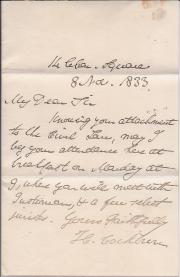 Square
8 Nov. 1833.
My Dear Sir
Knowing your attachment
to the Civil Law, may I
beg your attendance here at
breakfast on Monday at
9, where you will meet with
Justinian, & a few select
jurists. Yours Faithfully
H. Cockburn